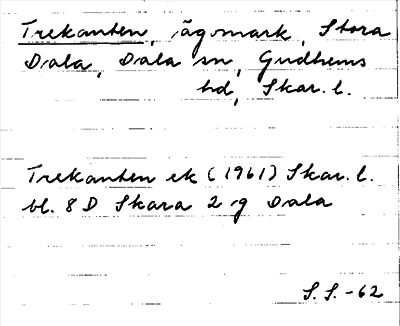 Trekanten, ägomark, Stora
Dala, Dala sn, Gudhems
hd, Skar. l.
Trekanten ek (1961) Skar. l.
bl. 8 D Skara 2 g Dala
S.S. -62